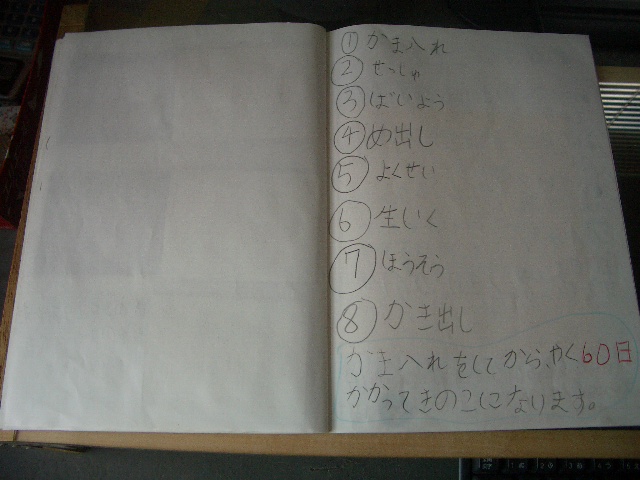 ① かま入れ
② せっしゅ
③ ばいよう
④ め出し
⑤ よくせい
⑥ 生いく
⑦ ほうそう
⑧ かき出し
かま入れをしてからやく60日
かかってきのこになります。